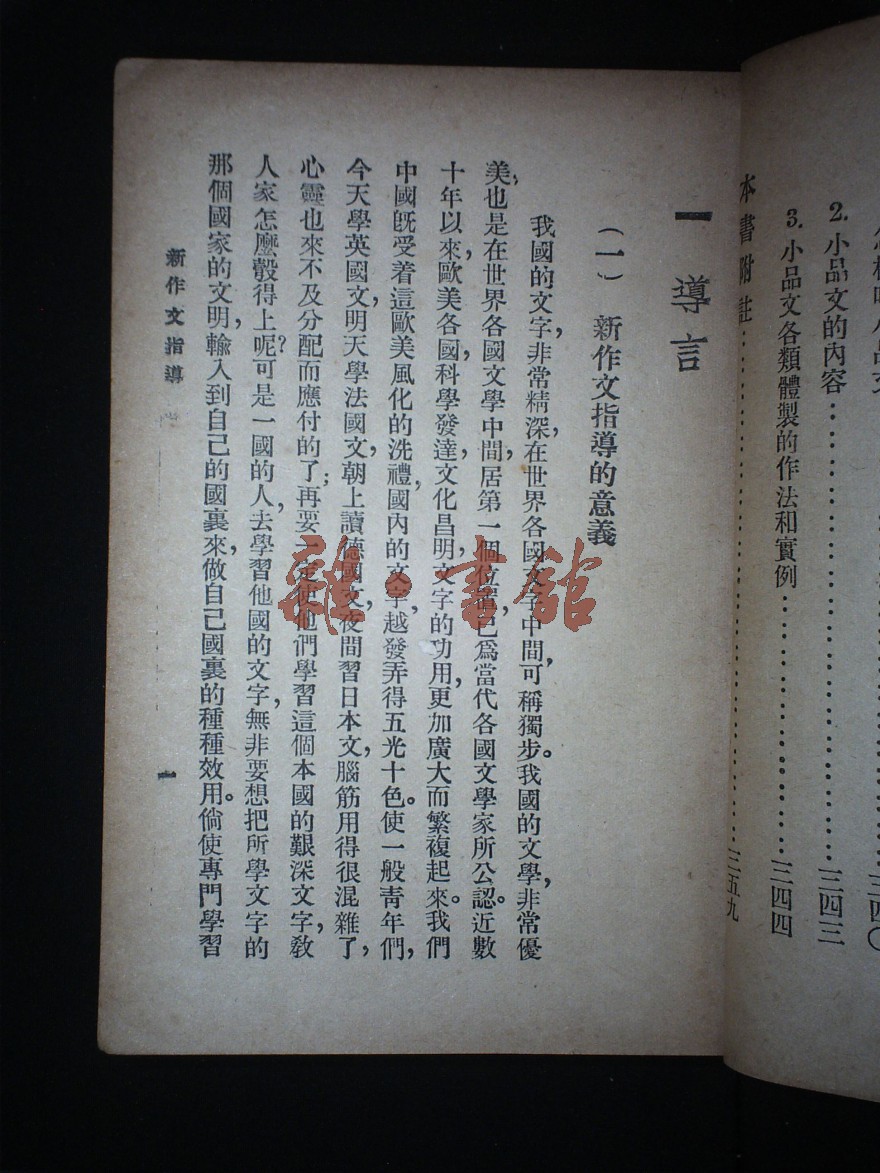 2. 小品文的內容……三四三
3. 小品文各類體製的作法和實例……三四四
本書附註……三五九
一 導言
(一) 新作文指導的意義
我國的文字，非常精深，在世界各國文字中間，可稱獨步。我國的文學，非常優
美，也是在世界各國文學中間，居第一個位置，已爲當代各國文學家所公認。近數
十年以來，歐美各國，科學發達，文化昌明，文字的功用，更加廣大而繁複起來。我們
中國旣受着這歐美風化的洗禮，國內的文字，越發弄得五光十色。使一般青年們，
今天學英國文，明天學法國文，朝上讀德國文，夜間習日本文，腦筋用得很混雜了，
心靈也來不及分配而應付的了；再要一定使他們學習這個本國的艱深文字，敎
人家怎麼彀得上呢？可是一國的人，去學習他國的文字，無非要想把所學文字的
那個國家的文明，輸入到自己的國裏來，做自己國裏的種種效用。倘使專門學習
新作文指導
一
雜·書館